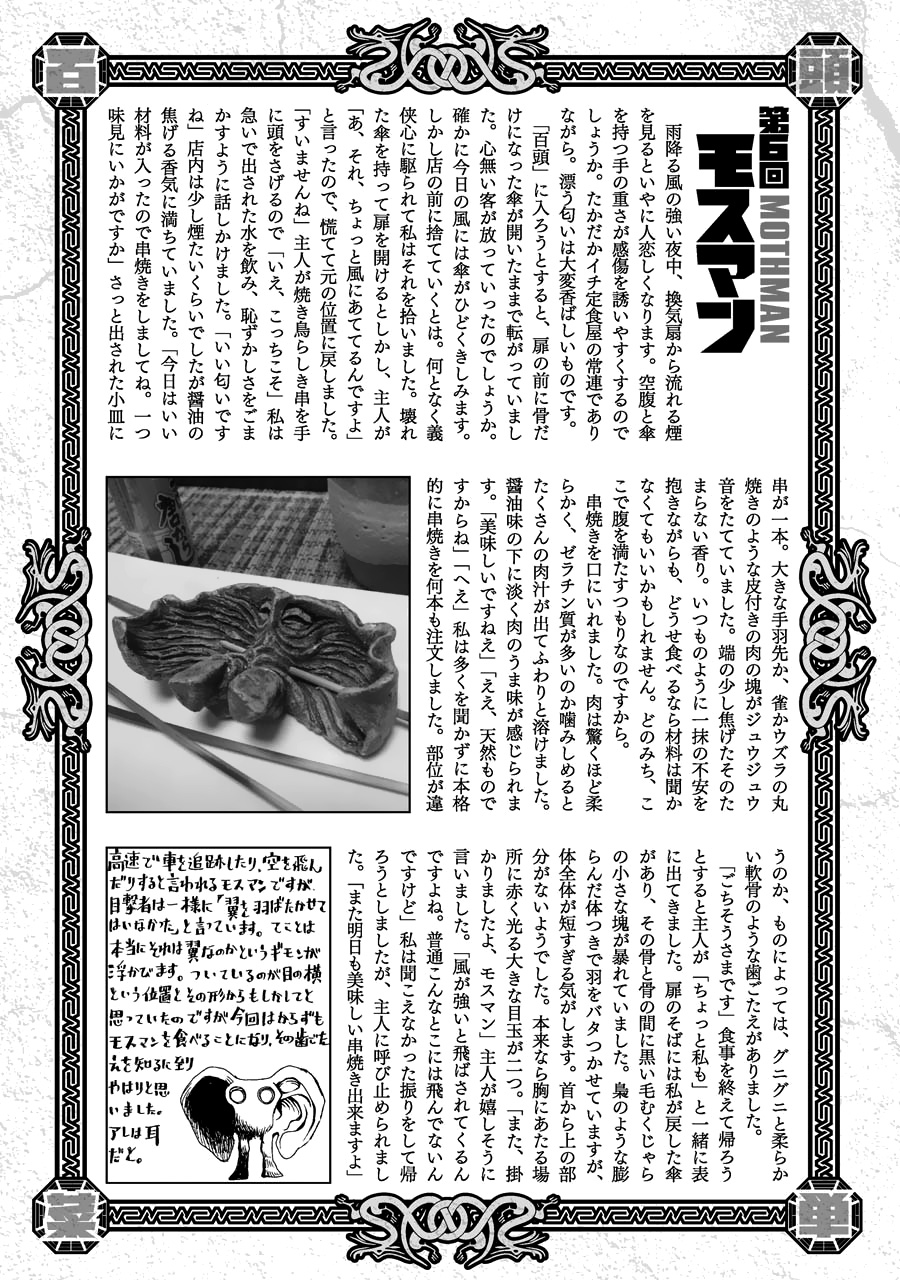 百頭
菜単
第6回
モスマン
MOTHMAN
雨降る風の強い夜中、換気扇から流れる煙
を見るといやに人恋しくなります。空腹と傘
を持つ手の重さが感傷を誘いやすくするので
しょうか。たかだかイチ定食屋の常連であり
ながら。漂う匂いは大変香ばしいものです。
「百頭」に入ろうとすると、扉の前に骨だ
けになった傘が開いたままで転がっていまし
た。心無い客が放っていったのでしょうか。
確かに今日の風には傘がひどくきしみます。
しかし店の前に捨てていくとは。何となく義
侠心に駆られて私はそれを拾いました。壊れ
た傘を持って扉を開けるとしかし、主人が
「あ、それ、ちょっと風にあててるんですよ」
と言ったので、慌てて元の位置に戻しました。
「すいませんね」主人が焼き鳥らしき串を手
に頭をさげるので「いえ、こっちこそ」私は
急いで出された水を飲み、恥ずかしさをごま
かすように話しかけました。「いい匂いです
ね」店内は少し煙たいくらいでしたが醤油の
焦げる香気に満ちていました。「今日はいい
材料が入ったので串焼きをしましてね。一つ
味見にいかがですか」さっと出された小皿に
串が一本。大きな手羽先か、雀かウズラの丸
焼きのような皮付きの肉の塊がジュウジュウ
音をたてていました。端の少し焦げたそのた
まらない香り。いつものように一抹の不安を
抱きながらも、どうせ食べるなら材料は聞か
なくてもいいかもしれません。どのみち、こ
こで腹を満たすつもりなのですから。
串焼きを口にいれました。肉は驚くほど柔
らかく、ゼラチン質が多いのか噛みしめると
たくさんの肉汁が出てふわりと溶けました。
醤油味の下に淡く肉のうま味が感じられま
す。「美味しいですねえ」「ええ、天然もので
すからね」「へえ」私は多くを聞かずに本格
的に串焼きを何本も注文しました。部位が違
うのか、ものによっては、グニグニと柔らか
い軟骨のような歯ごたえがありました。
「ごちそうさまです」食事を終えて帰ろう
とすると主人が「ちょっと私も」と一緒に表
に出てきました。扉のそばには私が戻した傘
があり、その骨と骨の間に黒い毛むくじゃら
の小さな塊が暴れていました。梟のような膨
らんだ体つきで羽をバタつかせていますが、
体全体が短すぎる気がします。首から上の部
分がないようでした。本来なら胸にあたる場
所に赤く光る大きな目玉が二つ。「また、掛
かりましたよ、モスマン」主人が嬉しそうに
言いました。「風が強いと飛ばされてくるん
ですよね。普通こんなとこには飛んでないん
ですけど」私は聞こえなかった振りをして帰
ろうとしましたが、主人に呼び止められまし
た。「また明日も美味しい串焼き出来ますよ」
高速で車を追跡したり、空を飛ん
だりすると言われるモスマンですが、
目撃者は一様に「翼を羽ばたかせて
はいなかった」と言っています。てことは
本当にそれは翼なのかというギモンが
浮かびます。ついているのが目の横
という位置とその形からもしかしてと
思っていたのですが今回はからずも
モスマンを食べることになり、その歯ごた
えを知るに到り
やはりと思
いました。
アレは耳
だと。